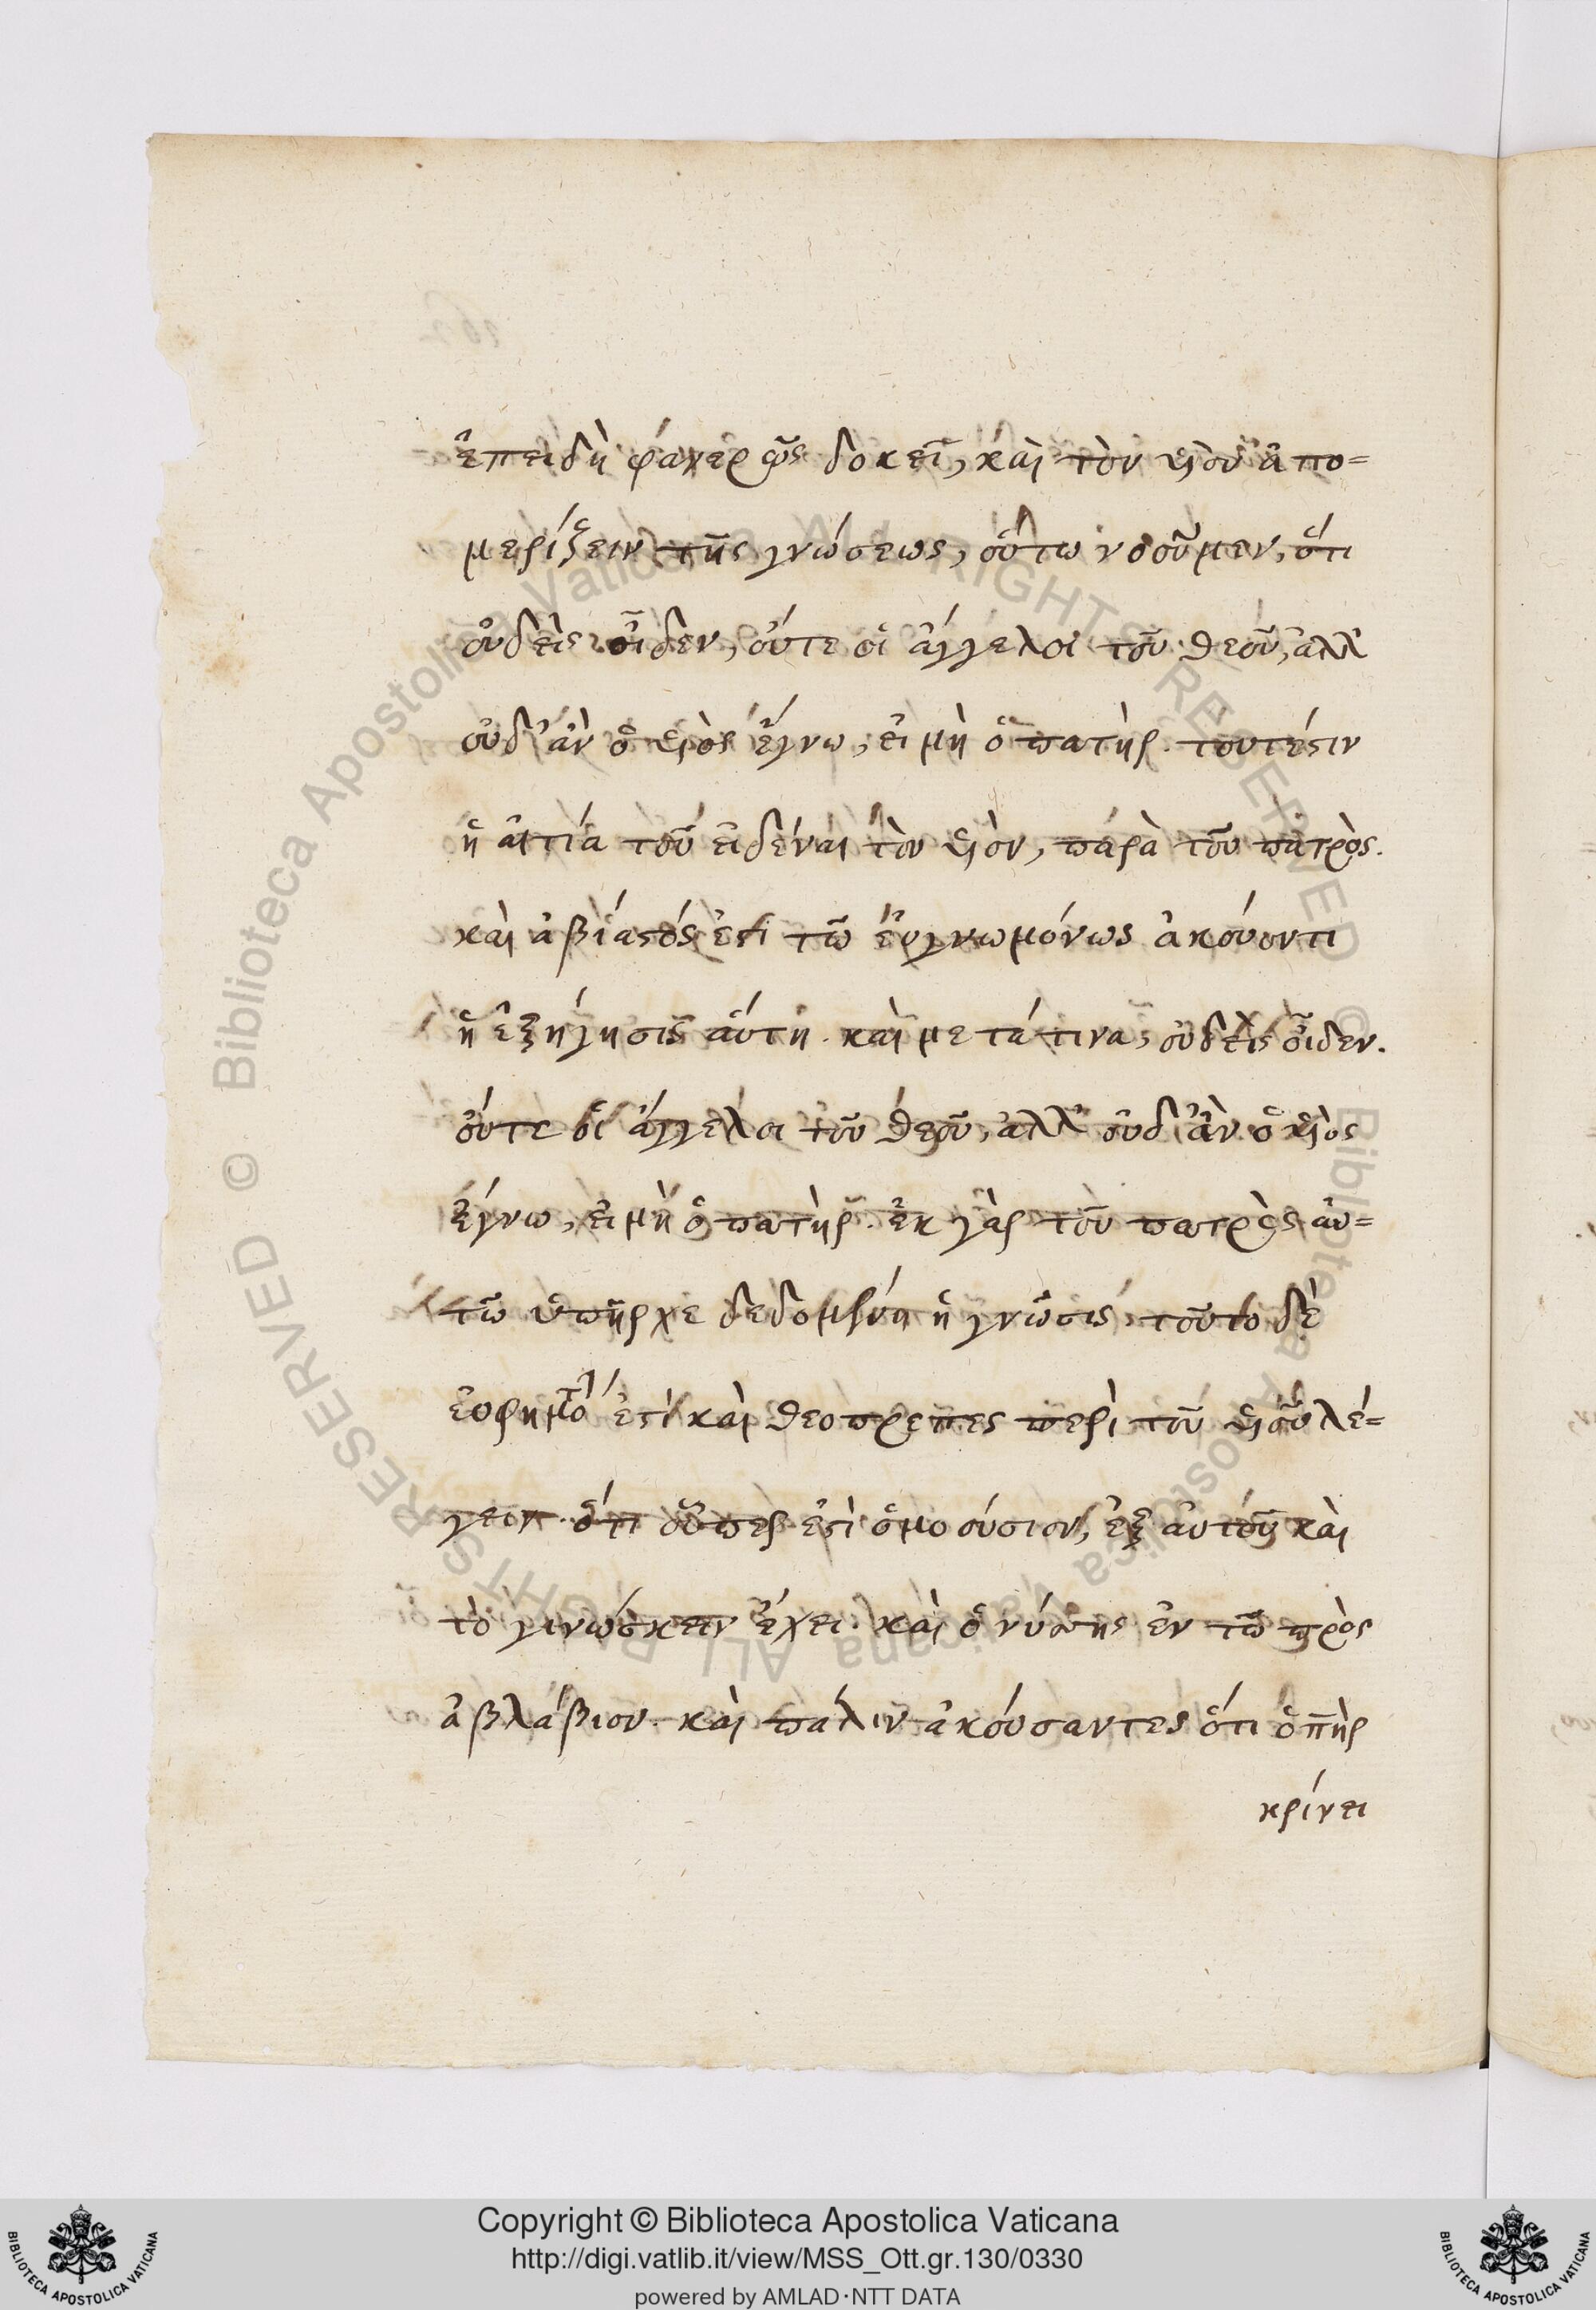 ἐπειδὴ φανερῶς δοκεῖ, καὶ τὸν υἱὸν ἀπο=
μερίζειν τῆς γνώσεως, οὕτω νοοῦμεν, ὅτι
οὐδεὶς οἶδεν, οὔτε οἱ ἄγγελοι τοῦ θεοῦ, ἀλλ'
οὐδ' ἂν ὁ υἱὸς ἔγνω, εἰ μὴ ὁ πατὴρ. τουτέστιν
ἡ αἰτία τοῦ εἰδέναι τὸν υἱὸν, παρὰ τοῦ πατρὸς.
καὶ ἀβίαστός ἐστι τῷ εὐγνωμόνως ἀκούοντι
ἡ ἐξήγησις αὕτη. καὶ μετά τινα, οὐδεὶς οἶδεν.
οὔτε οἱ ἄγγελοι τοῦ θεοῦ, ἀλλ' οὐδ' ἂν ὁ υἱὸς
ἔγνω, εἰ μὴ ὁ πατὴρ. ἐκ γὰρ τοῦ πατρὸς αὐ=
τῷ ὑπῆρχε δεδομένη ἡ γνῶσις. τοῦτο δὲ
ἐστὶ καὶ θεοπρεπες περὶ τοῦ υἱοῦ λέ=
γειν. ὅτι οὗπερ ἐστὶ ὁμοούσιον, ἐξ αὐτοῦ καὶ
τὸ γινώσκειν ἔχει. καὶ ὁ νύσης ἐν τῷ πρὸς
ἀβλάβιον. καὶ πάλιν ἀκούσαντες ὅτι ὁ πὴρ
κρίνει
Copyright © Biblioteca Apostolica Vaticana
http://digi.vatlib.it/view/MSS_Ott.gr.130/0330
powered by AMLAD·NTT DATA